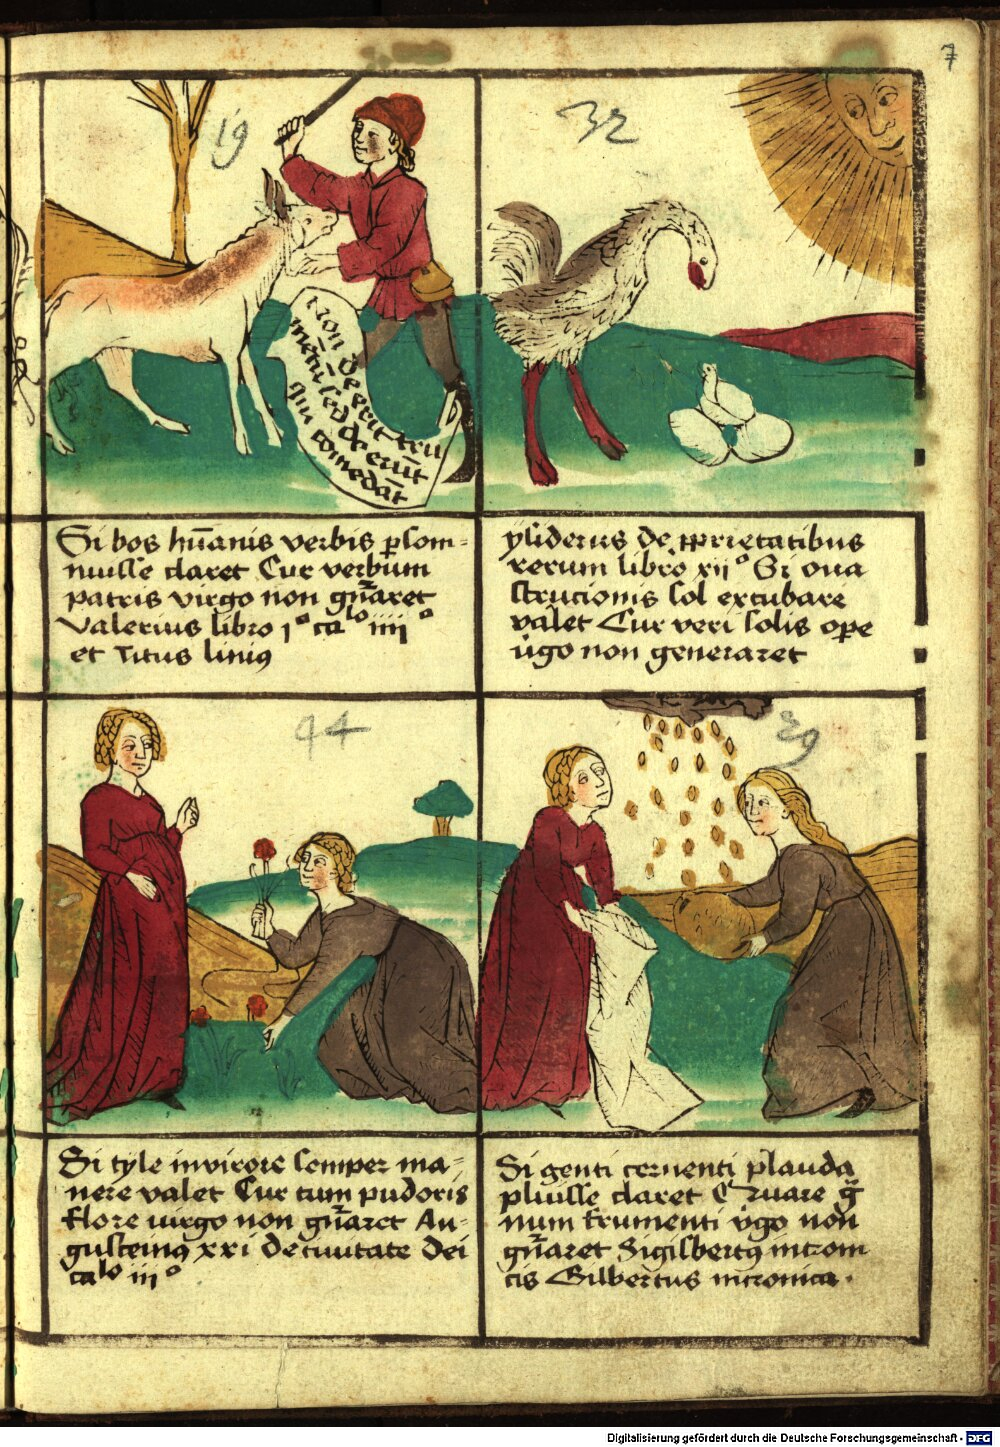 7
19
32
Non deerit tru
metū sed deerūt
qui comedāt
Si bos hūanis verbis ꝑsom-
nuisse claret Cur verbum
patris virgo non gn̄aret
Valerius libro 1º calo iiiiº
et Titus liniꝯ
ysiderus de ꝓprietatibus
rerum libro xiiº Si oua
strucionis sol excubare
valet Cur veri solis oꝑe
v̇go non generaret
44
29
Si tyle in virore semper ma-
nere valet Cur tum pudoris
flore uirgo non gn̄aret Au-
gusteinꝯ xxi de ciuitate dei
calo iiiº
Si genti cernenti plauda
pluisse claret Quare gͣ
num frumenti v̇go non
gn̄aret Sigilbertꝯ in crom
cis Gilbertus in cronica.
Digitalisierung gefördert durch die Deutsche Forschungsgemeinschaft - DFG